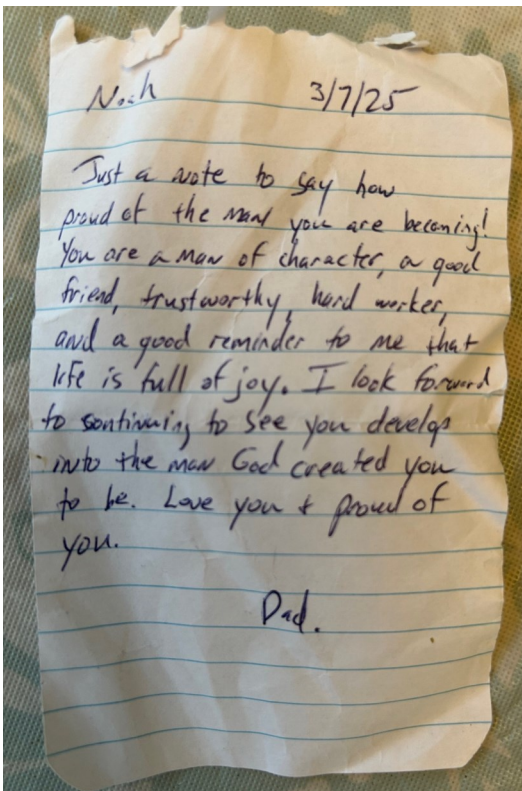 Noah 3/7/25
Just a note to say how
proud of the man you are becoming!
You are a man of character, a good
friend, trustworthy, hard worker,
and a good reminder to me that
life is full of joy. I look forward
to continuing to see you develop
into the man God created you
to be. Love you & proud of
you.
Dad.